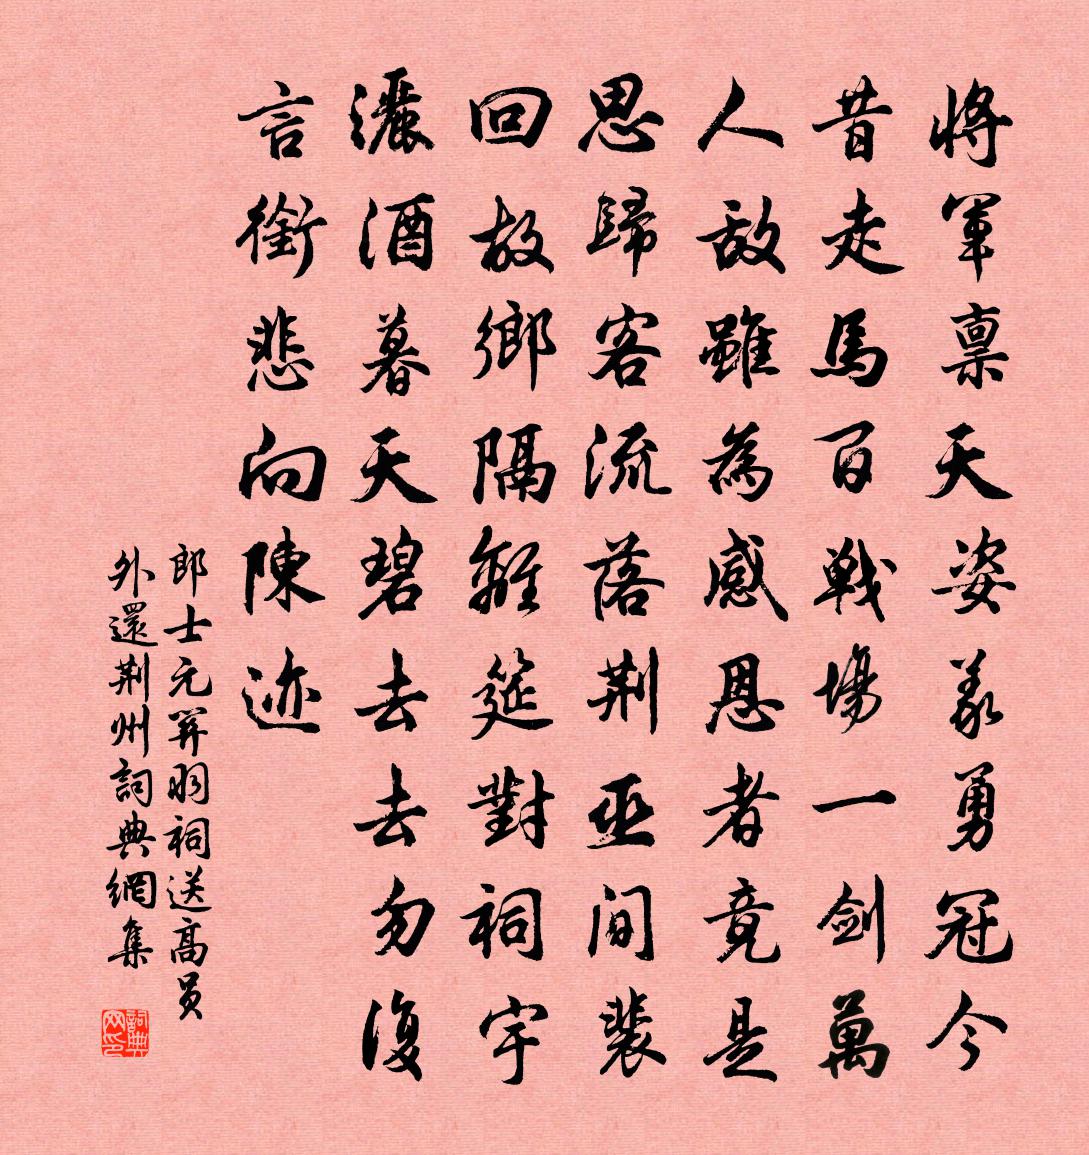 將軍稟天姿義勇冠今
昔走馬百戦場一剑萬
人敌雖為感恩者竟是
思歸客流落荆巫间裴
回故鄉隔離筵對祠宇
灑酒暮天碧去去勿復
言銜悲向陳迹
郎士元関羽祠送高员
外還荆州詞典網集
詞典网印